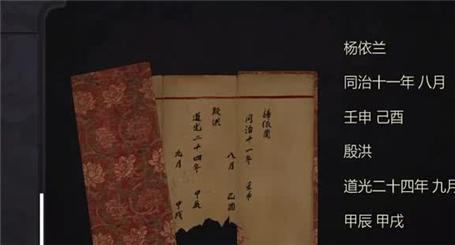 楊依蘭
同治十一年 壬申
八月 己酉
殷洪
道光二十四年 甲辰
九月 甲戌
杨依兰
同治十一年 八月
壬申 己酉
殷洪
道光二十四年 九月
甲辰 甲戌